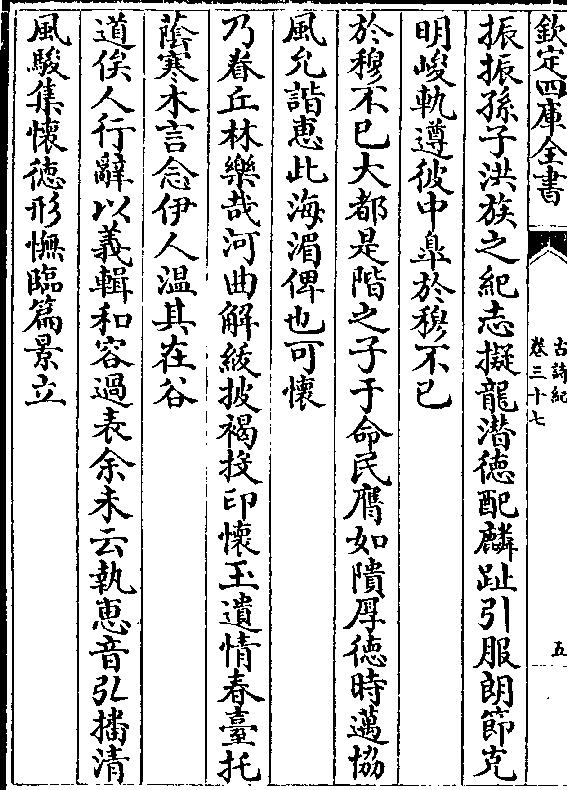 欽定四庫全書
古詩紀
卷三十七
五
振振孫子洪族之紀志擬龍潛徳配麟趾引服朗節克
明峻軌遵彼中臯於穆不已
於穆不已大都是階之子于命民膺如隤厚徳時邁協
風允諧惠此海湄俾也可懷
乃眷丘林樂哉河曲解紱披褐投印懷玉遺情春臺托
䕃寒木言念伊人温其在谷
道俟人行辭以義輯和容過表余未云執恵音弘播清
風駿集懷徳形憮臨篇景立